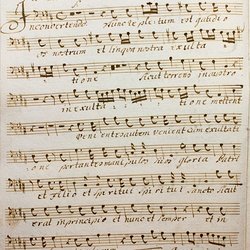 In convertendo tunc repletum est gaudio
os nostrum et lingua nostra exulta
tione sicut torrens in austro
in exulta tione metent
Venientes autem venient cum exultati
one portantes manipulos suos gloria Patri
et filio et spiritui spiritui Sancto sicut
erat in principio et nunc et semper et in